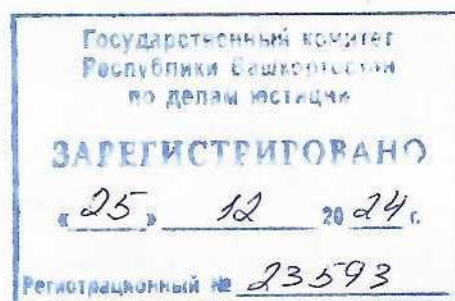 Государственный комитет
Республики Башкортостан
по делам юстиции
ЗАРЕГИСТРИРОВАНО
«25» 12 2024 г.
Регистрационный № 23593